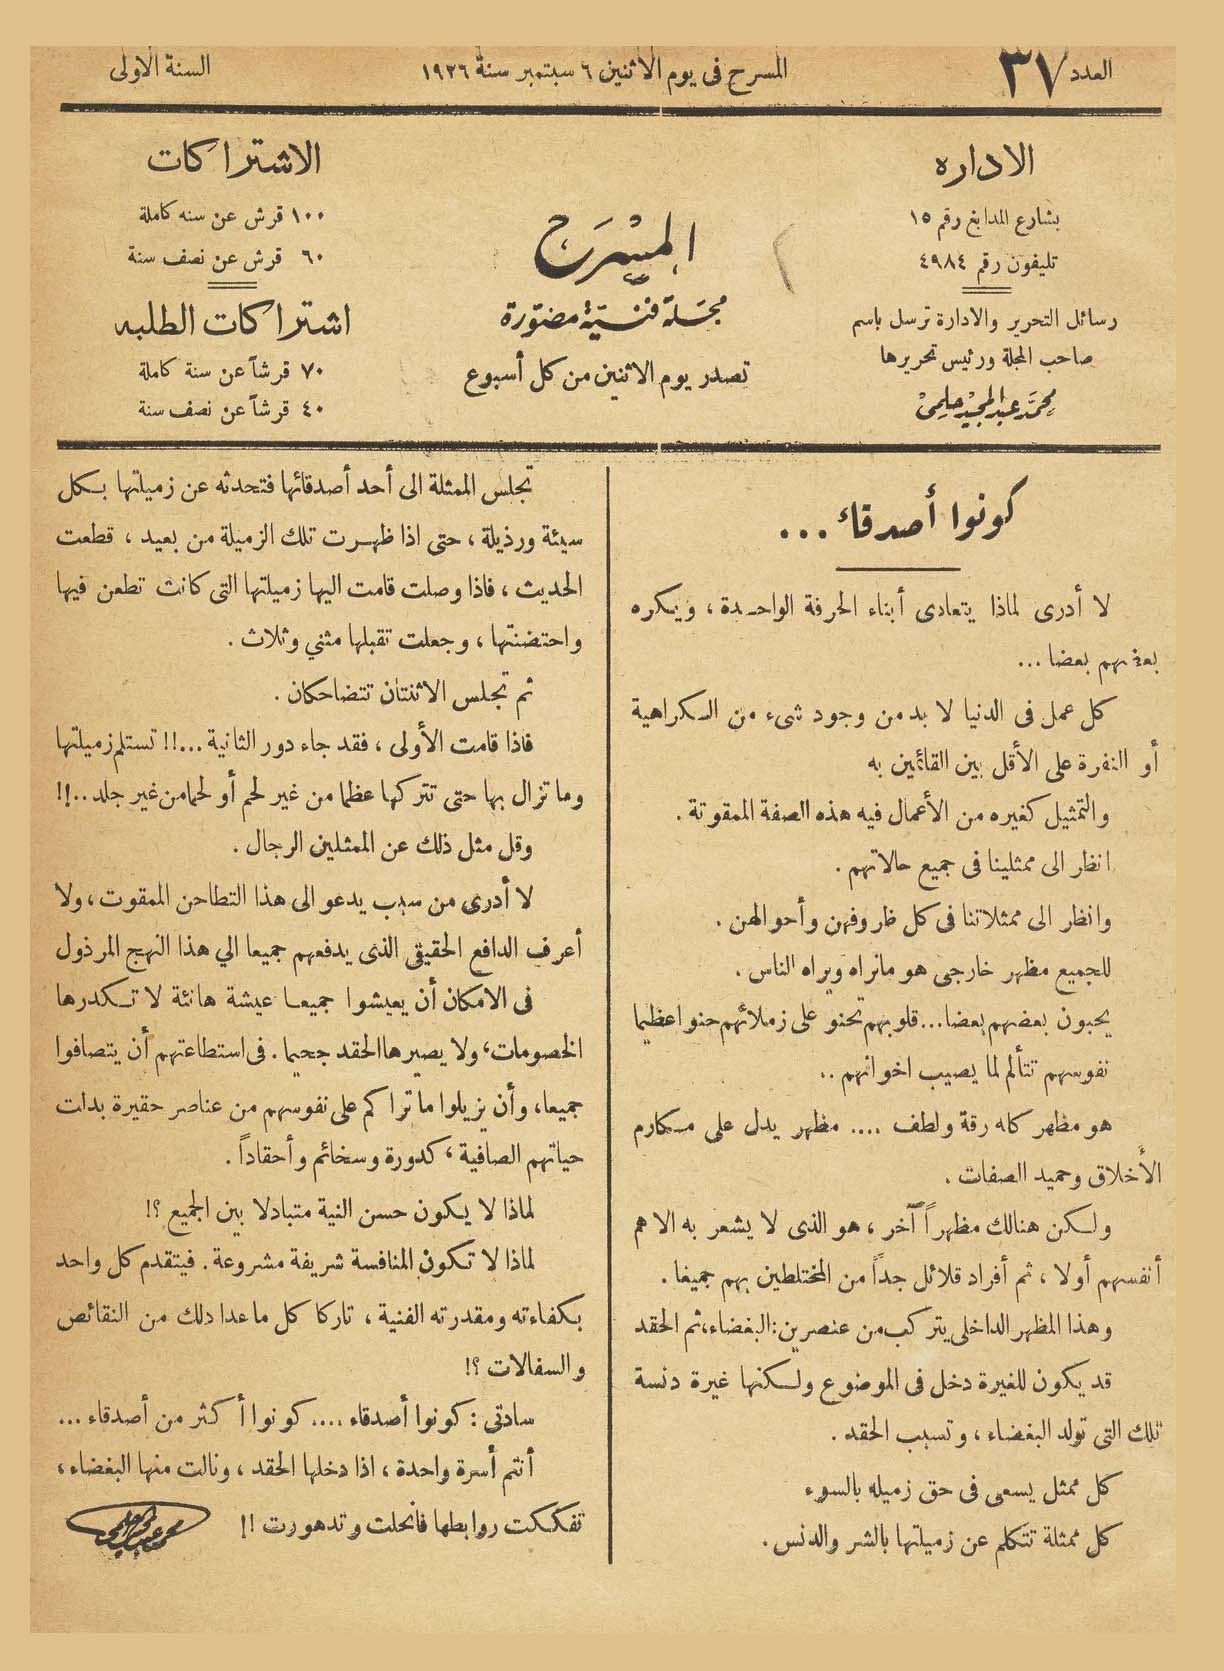 العدد ٣٧
المسرح فى يوم الاثنين ٦ سبتمبر سنة ١٩٢٦
السنة الاولى
الاداره
بشارع المدابغ رقم ١٥
تليفون رقم ٤٩٨٤
رسائل التحرير والادارة ترسل باسم
صاحب المجلة ورئيس تحريرها
محمد عبد المجيد حلمى
المسرح
مجلة فنية مصورة
تصدر يوم الاثنين من كل أسبوع
الاشتراكات
١٠٠ قرش عن سنه كاملة
٦٠ قرش عن نصف سنة
اشتراكات الطلبه
٧٠ قرشاً عن سنة كاملة
٤٠ قرشاً عن نصف سنة
كونوا أصدقاء ...
لا أدرى لماذا يتعادى أبناء الحرفة الواحدة ، ويكره
بعضهم بعضا ...
كل عمل فى الدنيا لا بد من وجود شىء من الكراهية
أو النفرة على الأقل بين القائمين به
والتمثيل كغيره من الأعمال فيه هذه الصفة الممقوتة .
انظر الى ممثلينا فى جميع حالاتهم .
وانظر الى ممثلاتنا فى كل ظروفهن وأحوالهن .
للجميع مظهر خارجى هو مانراه ويراه الناس .
يحبون بعضهم بعضا... قلوبهم تحنو على زملائهم حنوا عظيما
نفوسهم تتألم لما يصيب اخوانهم ..
هو مظهر كله رقة ولطف .... مظهر يدل على مكارم
الأخلاق وحميد الصفات .
ولكن هنالك مظهراً آخر ، هو الذى لا يشعر به الا هم
أنفسهم أولا ، ثم أفراد قلائل جداً من المختلطين بهم جميعا .
وهذا المظهر الداخلى يتركب من عنصرين: البغضاء، ثم الحقد
قد يكون للغيرة دخل فى الموضوع ولكنها غيرة دنسة
تلك التى تولد البغضاء ، وتسبب الحقد .
كل ممثل يسعى فى حق زميله بالسوء
كل ممثلة تتكلم عن زميلتها بالشر والدنس .
تجلس الممثلة الى أحد أصدقائها فتحدثه عن زميلتها بكل
سيئة ورذيلة ، حتى اذا ظهرت تلك الزميلة من بعيد ، قطعت
الحديث ، فاذا وصلت قامت اليها زميلتها التى كانت تطعن فيها
واحتضنتها ، وجعلت تقبلها مثني وثلاث .
ثم تجلس الاثنتان تتضاحكان .
فاذا قامت الأولى ، فقد جاء دور الثانية ...!! تستلم زميلتها
وما تزال بها حتى تتركها عظما من غير لحم أو لحما من غير جلد ..!!
وقل مثل ذلك عن الممثلين الرجال .
لا أدرى من سبب يدعو الى هذا التطاحن الممقوت ، ولا
أعرف الدافع الحقيقى الذى يدفعهم جميعا الي هذا النهج المرذول
فى الامكان أن يعيشوا جميعا عيشة هانئة لا تكدرها
الخصومات، ولا يصيرها الحقد جحيما . فى استطاعتهم أن يتصافوا
جميعا، وأن يزيلوا ما تراكم على نفوسهم من عناصر حقيرة بدلت
حياتهم الصافية ، كدورة وسخائم وأحقاداً .
لماذا لا يكون حسن النية متبادلا بين الجميع ؟!
لماذا لا تكون المنافسة شريفة مشروعة . فيتقدم كل واحد
بكفاءته ومقدرته الفنية ، تاركا كل ماعدا ذلك من النقائص
والسفالات ؟!
سادتى : كونوا أصدقاء .... كونوا أكثر من أصدقاء ...
أنتم أسرة واحدة ، اذا دخلها الحقد ، ونالت منها البغضاء ،
تفككت روابطها فانحلت وتدهورت !!
محمد عبد المجيد حلمى